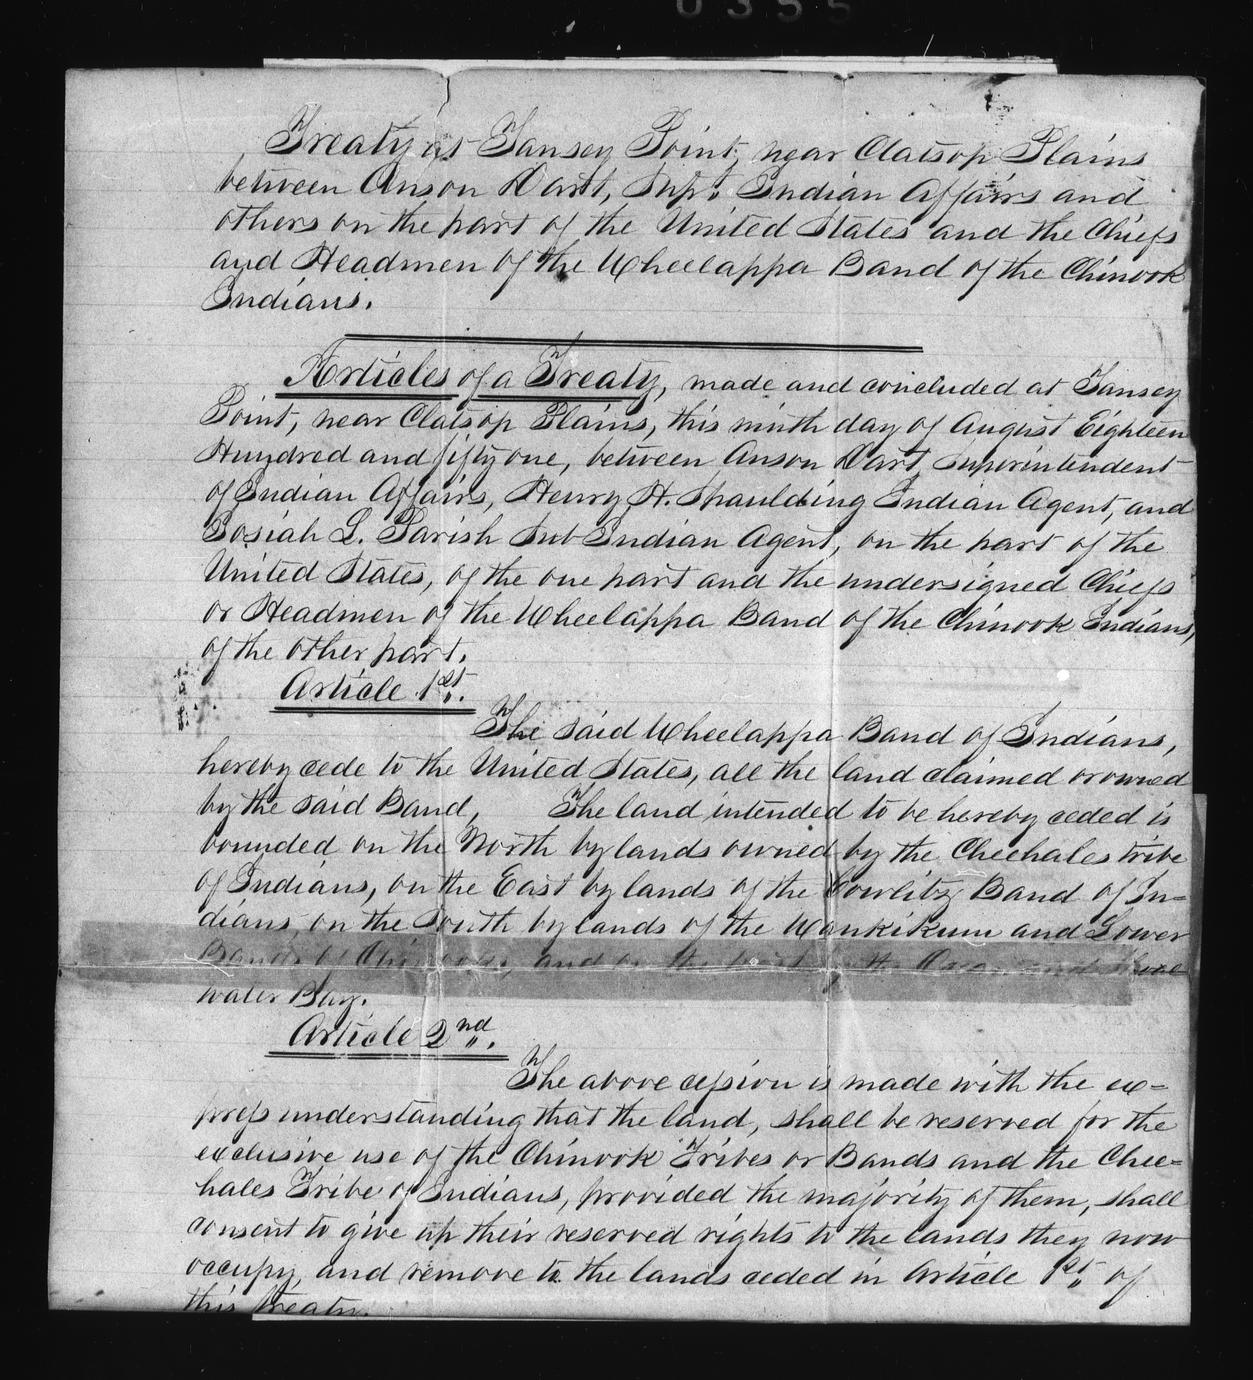 0355
Treaty at Tansey Point, near Clatsop Plains
between Anson Dart, Supt. Indian Affairs and
others on the part of the United States and the Chiefs
and Headmen of the Wheelappa Band of the Chinook
Indians.
Articles of a Treaty, made and concluded at Tansey
Point, near Clatsop Plains, this ninth day of August Eighteen
Hundred and fifty one, between Anson Dart, Superintendent
of Indian Affairs, Henry H. Spaulding Indian Agent, and
Josiah L. Parish Sub Indian Agent, on the part of the
United States, of the one part and the undersigned Chiefs
or Headmen of the Wheelappa Band of the Chinook Indians,
of the other part.
Article 1st.
The said Wheelappa Band of Indians,
hereby cede to the United States, all the land claimed or owned
by the said Band, The land intended to be hereby ceded is
bounded on the North by lands owned by the Cheehales tribe
of Indians, on the East by lands of the Cowlitz Band of In=
dians, on the South by lands of the Waukikum and Lower
Bands of Chinooks, and on the West by the Ocean and Shoal
water Bay.
Article 2nd.
The above cession is made with the ex=
press understanding that the land, shall be reserved for the
exclusive use of the Chinook Tribes or Bands and the Chee=
hales Tribe of Indians, provided the majority of them, shall
consent to give up their reserved rights to the lands they now
occupy, and remove to the lands ceded in Article 1st of
this treaty.